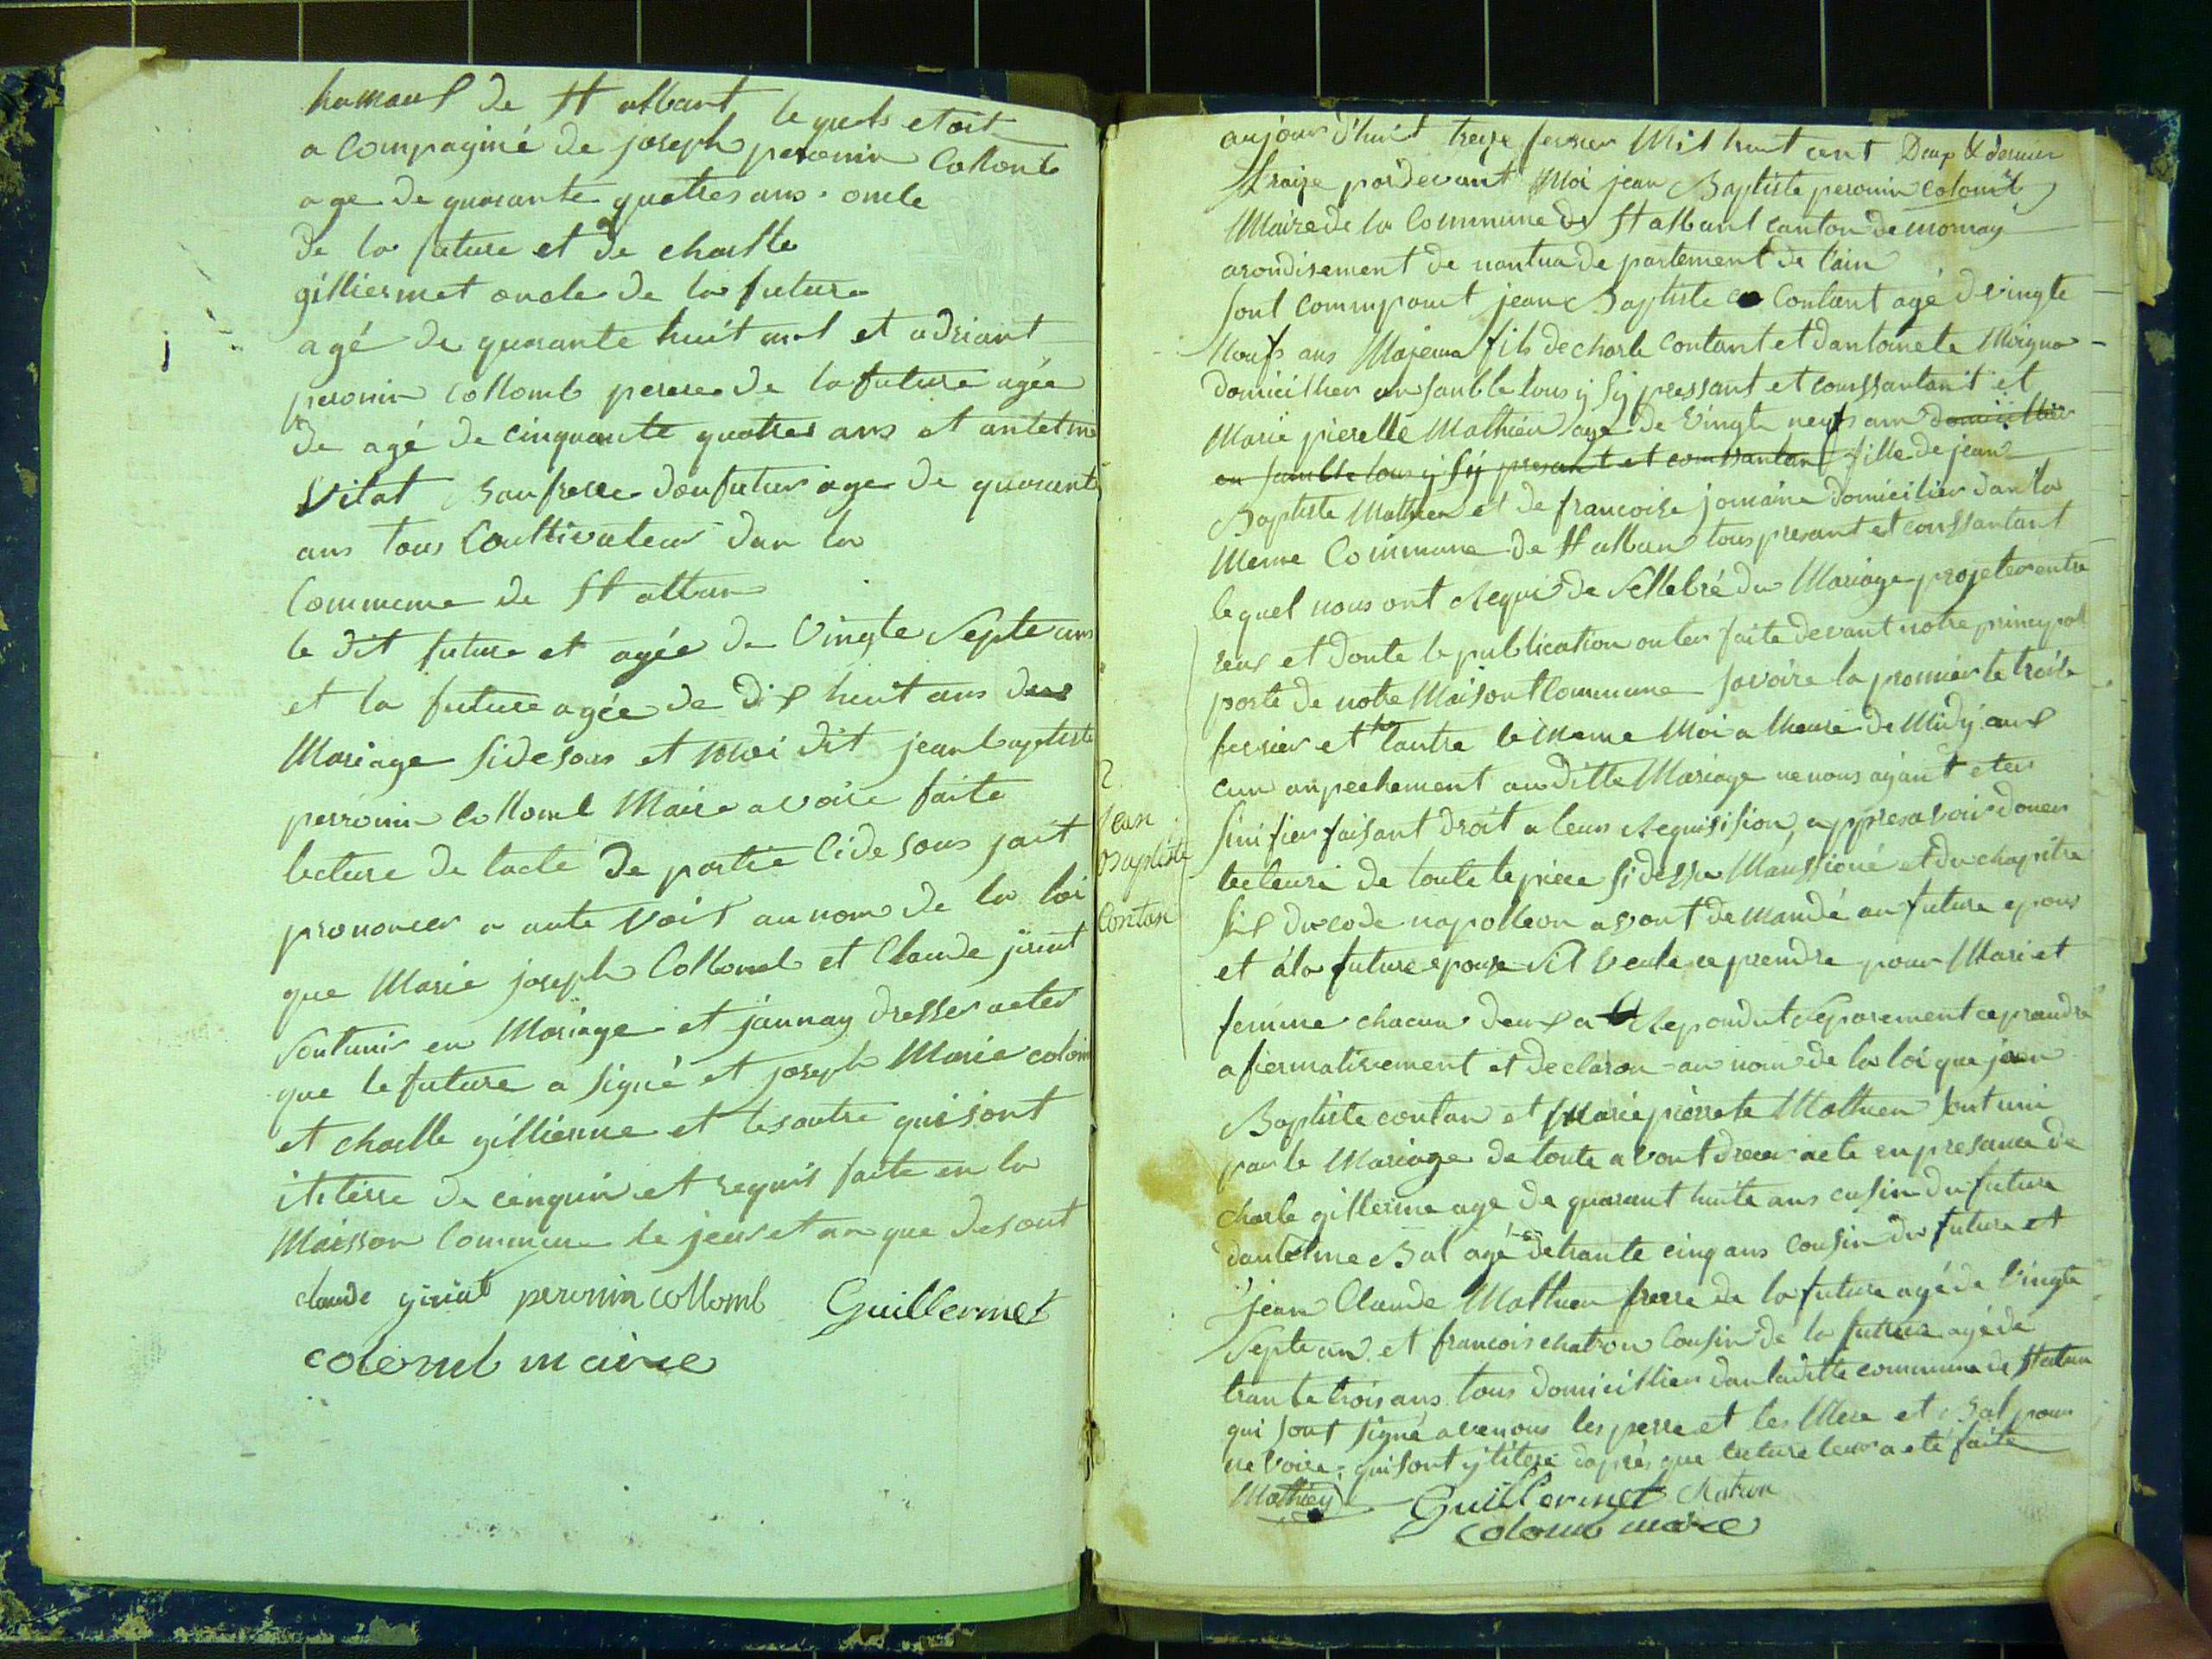 hameaus de St albant le quels etoit
a Compaginé de joseph peronin Collomb
age de quarante quattres ans oncle
de la future et de charlle
gilliermet oncle de la future
agé de quarante huit ans et adriant
peronin Collomb perere de la future agée
de agé de cinquante quattres ans et antetme
Vitat son frere dou futur age de quarante
ans tous Coultivateur dan la
Commeme de St alban
le dit future et agée de Vingte Septe ans
et la future agée de dis huit ans
Mariage sidesous et Moi dit jean baptiste
perronin Collomb Maire avoire faite
lecture de lacte de partie Cidesous jait
prononcer a aute Vois au nom de la loi
que Marie joseph Collomb et Claude jirint
sontunis en Mariage et jannay dresser acter
que le future a signé et joseph Marie colom
et charlle gillierme et les autre qui sont
iliterre de cenquir et requis faite en la
Maisson Commune le jeur et an que desout
claude giriat peronin collomb Guillermet
colomb maire
2
jean
Baptiste
Contan
aujour d'huit treze fevrier Mil huit cent Deux & dernier
Traize pardevant Moi jean Baptiste peronin colomb
Maire de la Commune de St albant canton de mornay
arondisement de nantua de partement de l'ain
sont commparut jean Baptiste Contant agé de vingte
Neufs ans Majeur fils de charle contant et dantoinete Moigna
domicilier ansamble tous y sy pressant et conssantant et
Marie pierette Mathieu age de Vingte neufs ann domicillier
en samble tous y sy presant et conssantant fille de jean
Baptiste Mathieu et de francoise jomaine domicilier dan la
Meme Commune de St alban tous presant et conssantant
le quel nous ont Requi de Sellebré du Mariage projeter entre
reux et donte le publication on ter faite devant notre principal
porte de notre Maisont Commune savoire la promier le troise
fevrier et lautre le Meme Moi a lheure de Midy aus
cun anpechement au ditte Mariage ne nous ayant eter
sinifier faisant droit a leur Requisision, appres avoir doner
lecteure de toute le piece si desse Manssioné et du chapitre
sis du code napolleon avont de mandé au future epous
et á la future epouse sil veule ce prendre pour Mari et
femme chacun deux a Repondut Separement ce prandre
afiermativement et declaron au nom de la loi que jean
Baptiste contan et Marie pierrete Mathieu sont uni
par le Mariage de toute avont drecer acte en presance de
charle gillerme age de quarant huite ans cusin du future
dantelme Bal agé de trante cinq ans cousin du future et
jean Claude Mathieu frere de la future agé de Vingte
Septe an et francois chatron Cousin de la future agé de
trante trois ans tous domicillier dan laditte commune de St alban
qui sont signé avenous les perre et les Mere et Bal pour
ne voire, qui sont ylitere daprés que lecture leur a eté faite
Mathieu Guillermet chatron
colomb maire